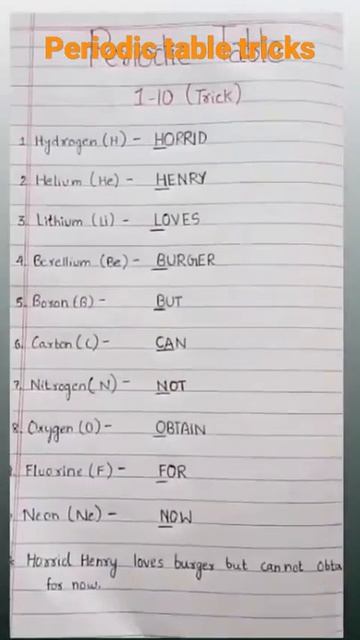 Periodic table tricks
Periodic Table
1-10 (Trick)
1. Hydrogen (H) - HORRID
2. Helium (He) - HENRY
3. Lithium (Li) - LOVES
4. Berellium (Be) - BURGER
5. Boron (B) - BUT
6. Carbon (C) - CAN
7. Nitrogen (N) - NOT
8. Oxygen (O) - OBTAIN
. Fluorine (F) - FOR
Neon (Ne) - NOW
Horrid Henry loves burger but can not obta
for now.